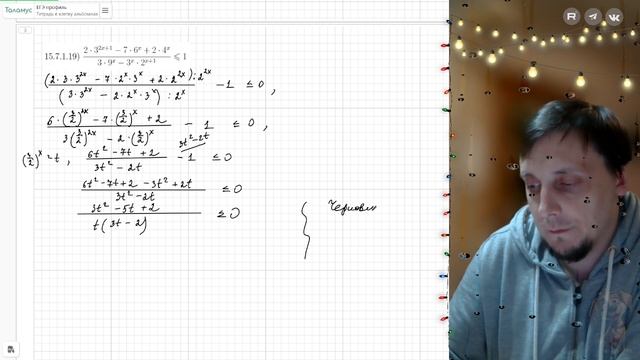 Таламус
ЕГЭ профиль
Тетрадь в клетку альбомная
15.7.1.19) (2 · 3^(2x+1) − 7 · 6^x + 2 · 4^x) / (3 · 9^x − 3^x · 2^(x+1)) ⩽ 1
((2 · 3 · 3^(2x) − 7 · 2^x · 3^x + 2 · 2^(2x)) : 2^(2x)) / ((3 · 3^(2x) − 2 · 2^x · 3^x) : 2^x) − 1 ≤ 0 ,
(6 · (3/2)^(2x) − 7 · (3/2)^x + 2) / (3(3/2)^(2x) − 2 · (3/2)^x) − 1 ≤ 0 ,
(3/2)^x = t , (6t² − 7t + 2) / (3t² − 2t) − 1 ≤ 0
3t² − 2t
(6t² − 7t + 2 − 3t² + 2t) / (3t² − 2t) ≤ 0
(3t² − 5t + 2) / (t(3t − 2)) ≤ 0